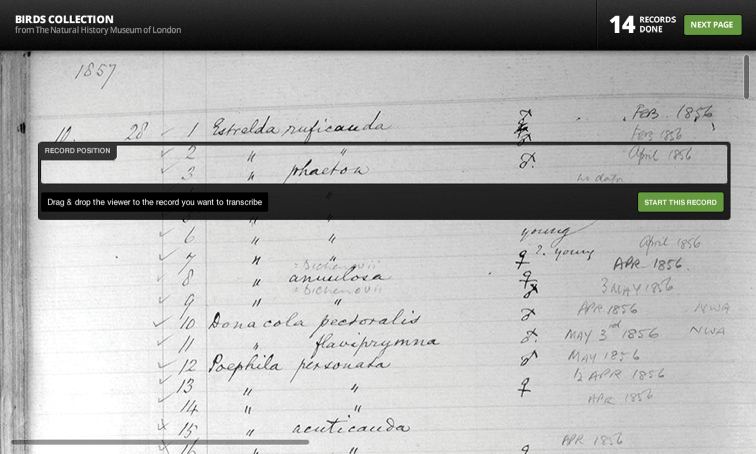 BIRDS COLLECTION
from The Natural History Museum of London
14 RECORDS DONE
NEXT PAGE
1857
FEB. 1856
28 1 Estrelda ruficauda ♂
FEB 1856
RECORD POSITION
2 " " ♂ April 1856
3 " phaeton ♂.
no data
Drag & drop the viewer to the record you want to transcribe
START THIS RECORD
6 " " young
April 1856
7 " " ♀ ?. young APR. 1856.
= Bichenovii
8 " annulosa ♀ 3 MAY 1856
= Bichenovii
9 " " ♂
APR 1856 NWA
10 Donacola pectoralis ♂
11 " flaviprymna ♂. MAY 3rd 1856 NWA
12 Poephila personata ♂ MAY 1856
13 " " ♀ APR 1856
14 " " APR 1856
15 " acuticauda
APR 1856
16 " " ♀